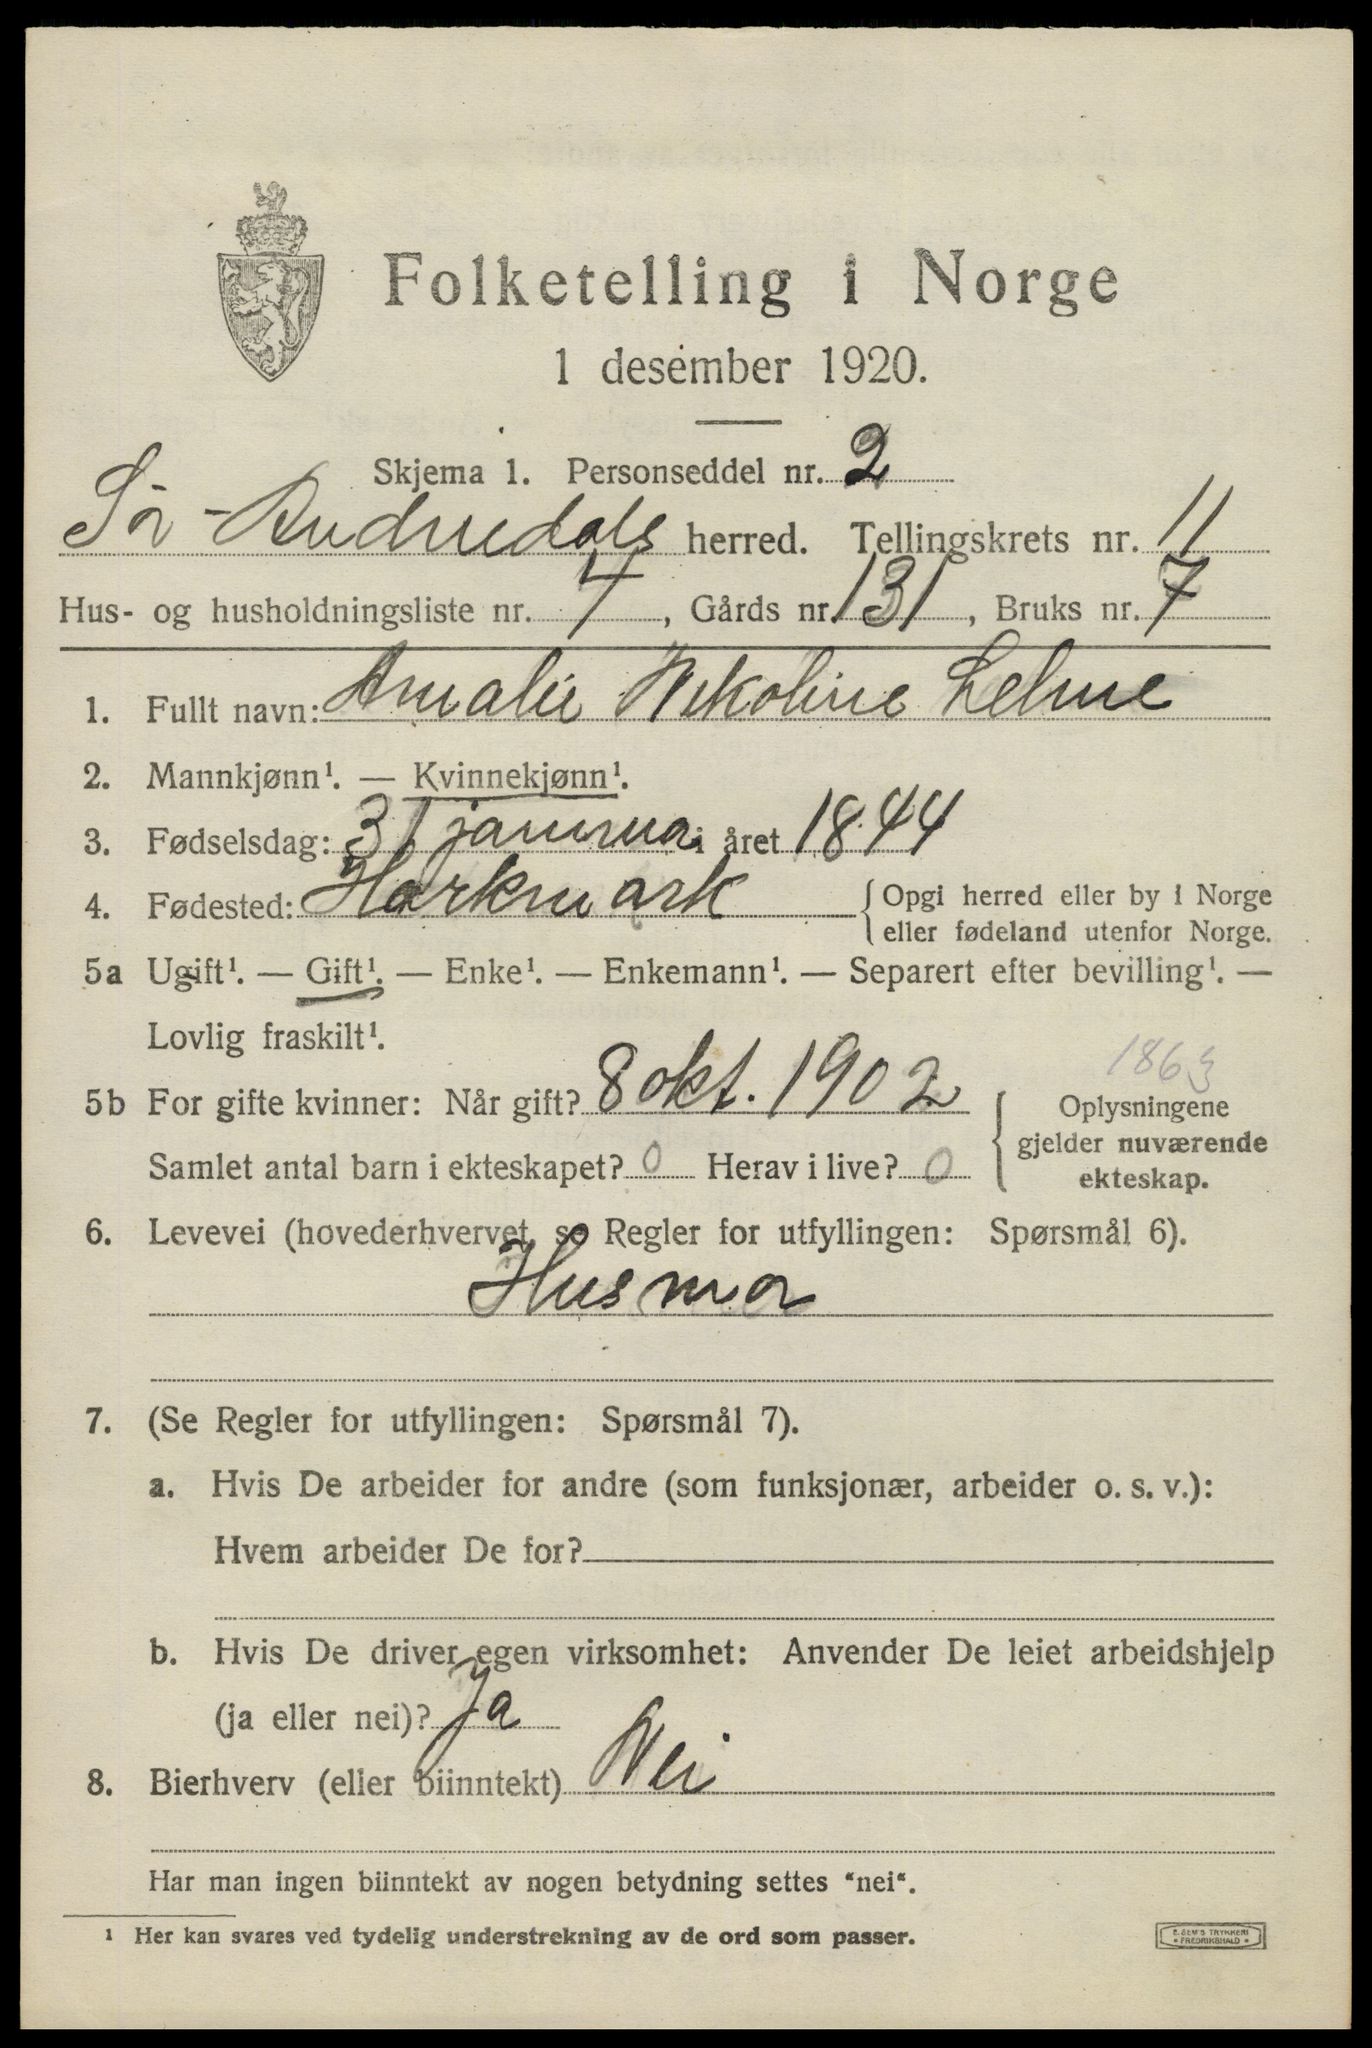 Folketelling i Norge
1 desember 1920.
Skjema 1. Personseddel nr. 2
Sör-Audnedals herred. Tellingskrets nr. 11
Hus- og husholdningsliste nr. 7, Gårds nr. 131, Bruks nr. 7
1. Fullt navn: Amalie Nikoline Lelme
2. Mannkjønn¹. — Kvinnekjønn¹.
3. Fødselsdag: 31 januar i året 1844
4. Fødested: Harkmark {Opgi herred eller by i Norge
eller fødeland utenfor Norge.
5a Ugift¹. — Gift¹. — Enke¹. — Enkemann¹. — Separert efter bevilling¹. —
Lovlig fraskilt¹.
1863
5b For gifte kvinner: Når gift? 8 okt. 1902 { Oplysningene
gjelder nuværende
Samlet antal barn i ekteskapet? 0 Herav i live? 0 ekteskap.
6. Levevei (hovederhvervet, se Regler for utfyllingen: Spørsmål 6).
Husmor
7. (Se Regler for utfyllingen: Spørsmål 7).
a. Hvis De arbeider for andre (som funksjonær, arbeider o. s. v.):
Hvem arbeider De for?
b. Hvis De driver egen virksomhet: Anvender De leiet arbeidshjelp
(ja eller nei)? Ja
8. Bierhverv (eller biinntekt) Nei
Har man ingen biinntekt av nogen betydning settes "nei".
¹ Her kan svares ved tydelig understrekning av de ord som passer.
E. SEM'S TRYKKERI
FREDRIKSHALD